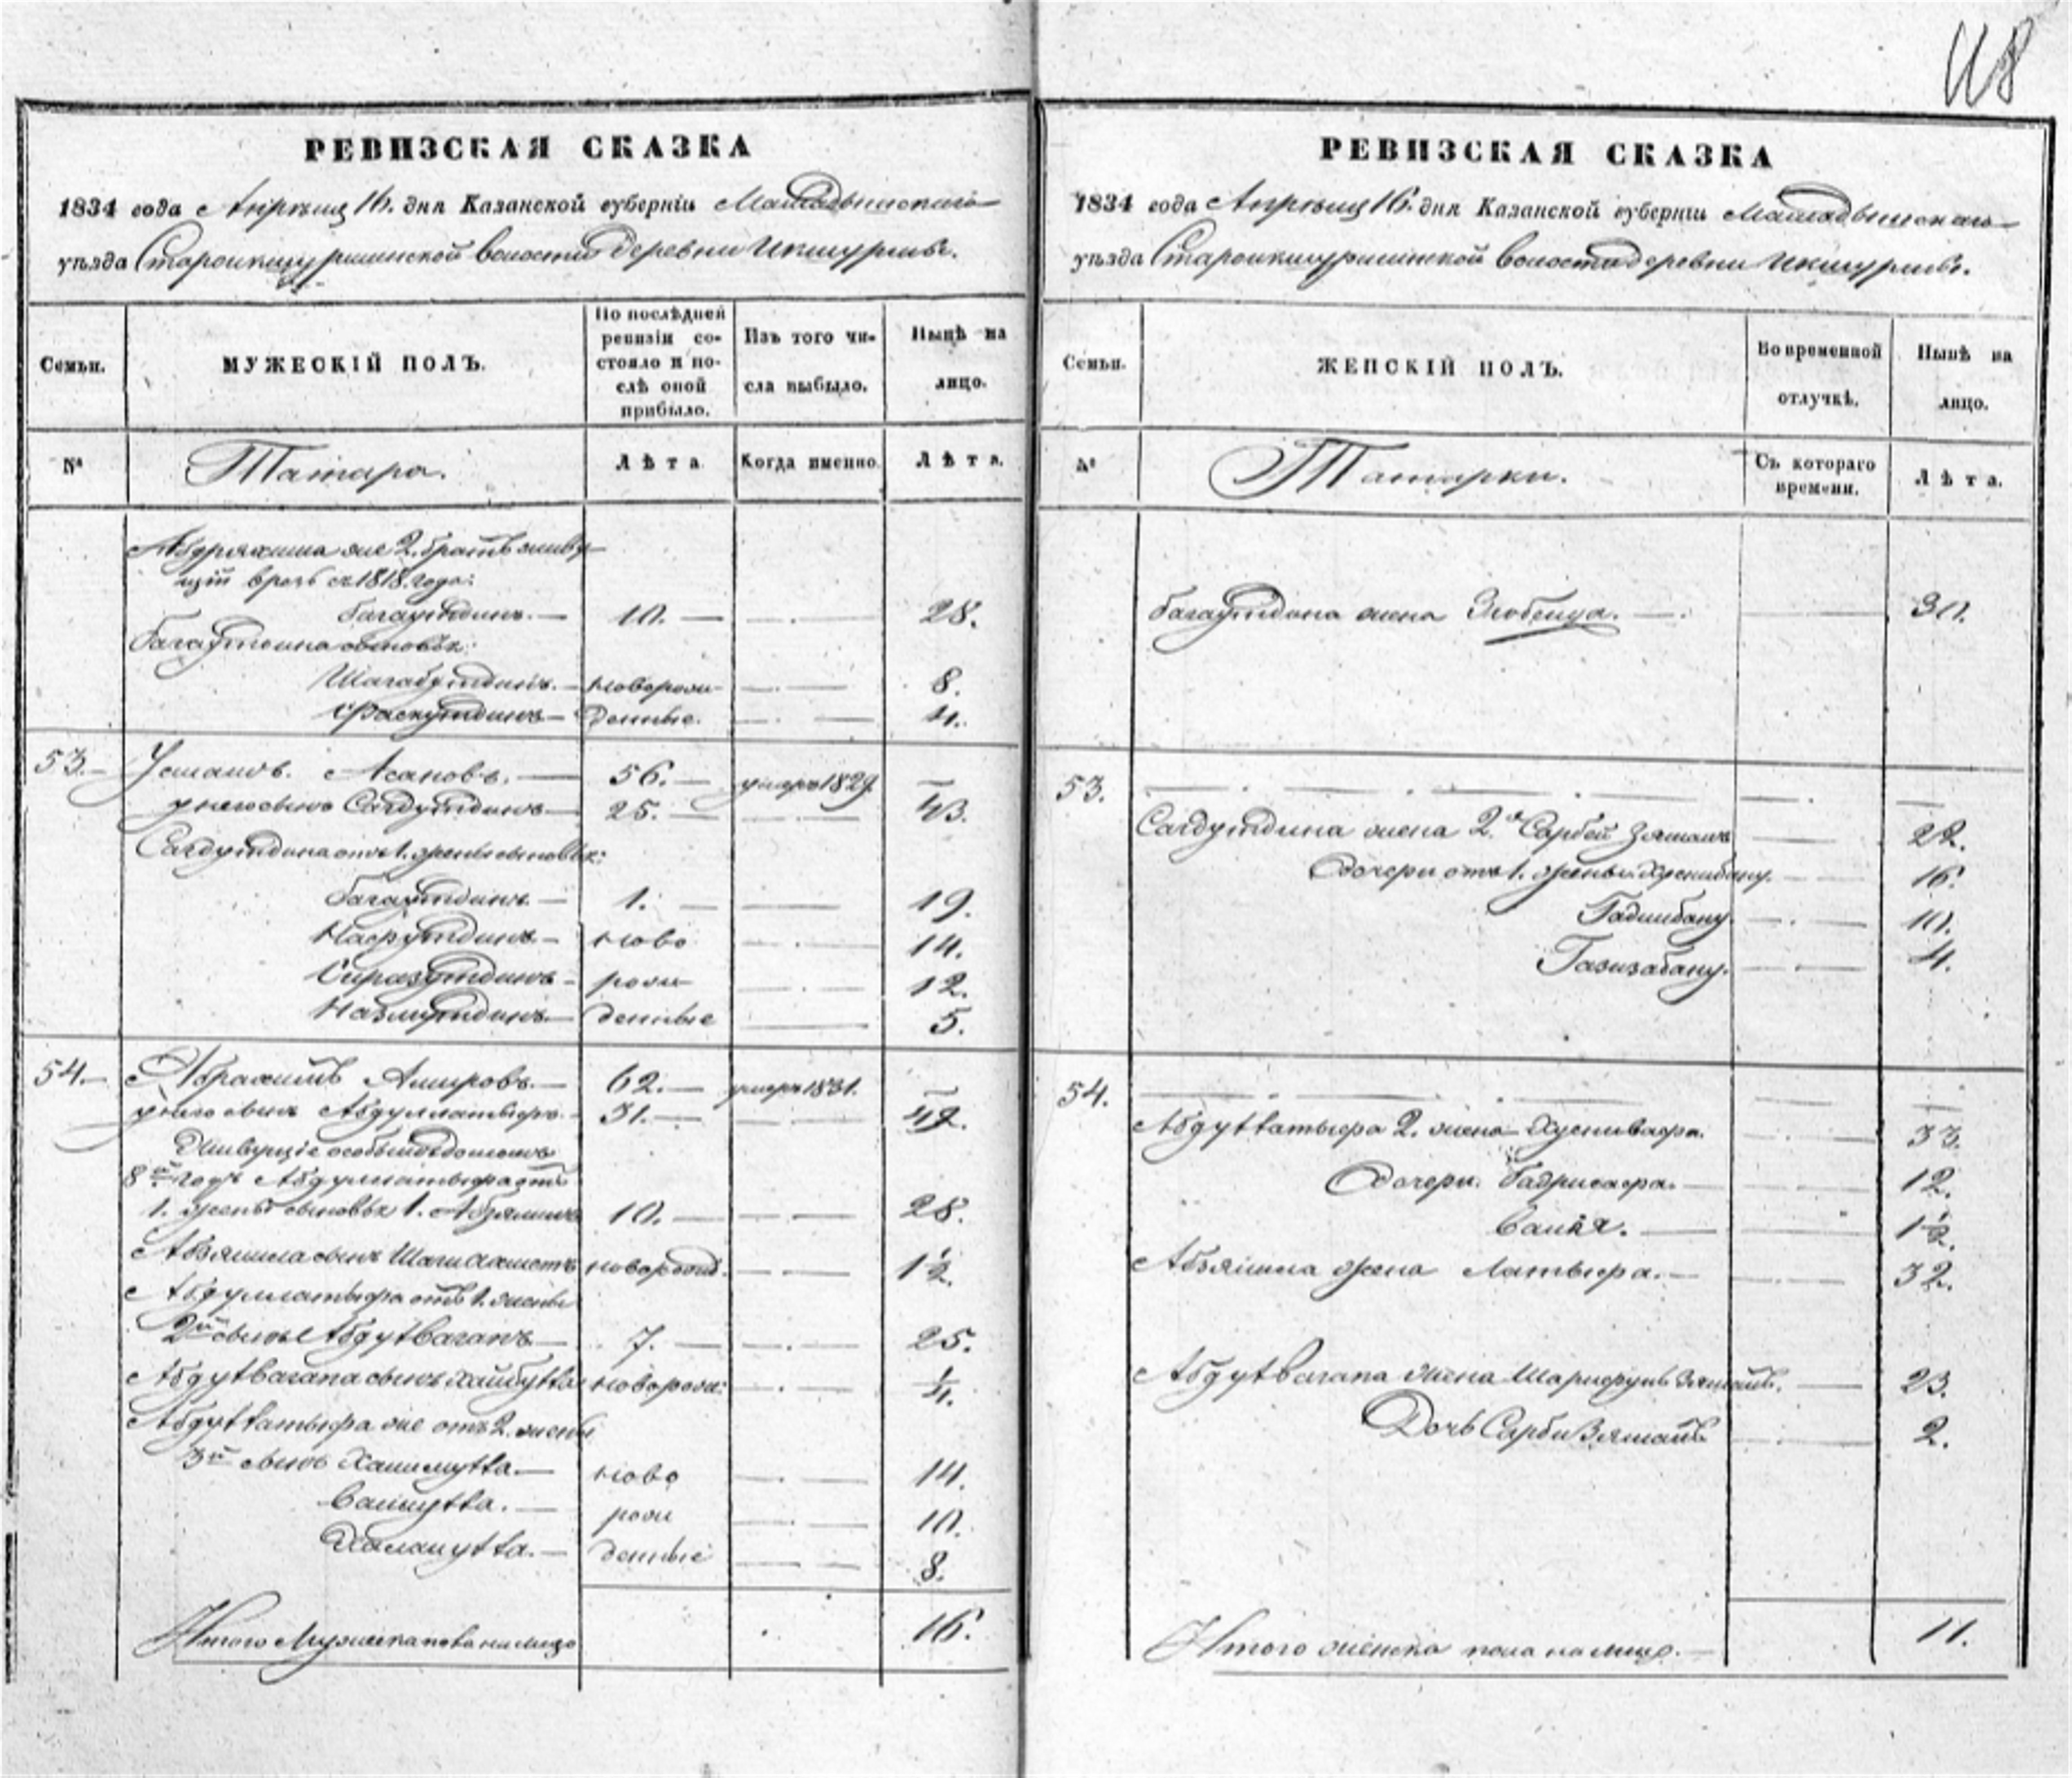 118
РЕВИЗСКАЯ СКАЗКА
1834 года Апреля 16. дня Казанской губерніи Мамадышскаго
уѣзда Староикшурминской волости деревни Икшурмы.
Семьи.
МУЖЕСКІЙ ПОЛЪ.
По послѣдней ревизіи состояло и послѣ оной прибыло.
Изъ того числа выбыло.
Нынѣ на лицо.
№
Татара.
Лѣта.
Когда именно.
Лѣта.
Абдряхима же 2. братъ живу
щій врозь съ 1818. года:
Багаутдинъ. — 10. — 28.
Багаутдина сыновья:
Шагабутдинъ. — новорож 8.
Фаскутдинъ — денные. 4.
53. Усманъ. Асановъ. — 56. — умеръ 1829 —
у него сынъ Сагдутдинъ — 25. — 43.
Сагдутдина отъ 1. жены сыновья:
Багаутдинъ. — 1. — 19.
Насрутдинъ. — ново 14.
Сиразутдинъ — рож 12.
Назмутдинъ. — денные 5.
54. Абрахимъ Амировъ. — 62. — умеръ 1831. —
у него сынъ Абдуллатыфъ. 31. — 49.
Живущіе особымъ домомъ
8й годъ Абдуллатыфа отъ
1. жены сыновья 1. Абзялилъ 10. — 28.
Абзялила сынъ новорожд. 1½.
Абдуллатыфа отъ 1. жены
2й сынъ Абдулвагапъ — 7. — 25.
Абдулвагапа сынъ Хайбулла новорож: ¼.
Абдуллатыфа же отъ 2. жены
3й сынъ Халимулла. — ново 14.
Валиулла. — рож 10.
— денные 8.
Итого Мужеска пола на лицо 16.
РЕВИЗСКАЯ СКАЗКА
1834 года Апреля 16. дня Казанской губерніи Мамадышскаго
уѣзда Староикшурминской волости деревни Икшурмы.
Семьи.
ЖЕНСКІЙ ПОЛЪ.
Во временной отлучкѣ.
Нынѣ на лицо.
№
Татарки.
Съ котораго времени.
Лѣта.
Багаутдина жена Зюбейда. — 30.
53.
Сагдутдина жена 2.я Сарбий Зяманъ 22.
Дочери отъ 1. жены 16.
Гадилбану 10.
Газизабану. 4.
54.
Абдуллатыфа 2. жена 33.
Дочери. Бадрисафа. — 12.
— 1½.
Абзялила жена Латыфа. — 32.
Абдулвагапа жена — 23.
Дочь Сарби Зяманъ. 2.
Итого женска пола на лицо. — 11.